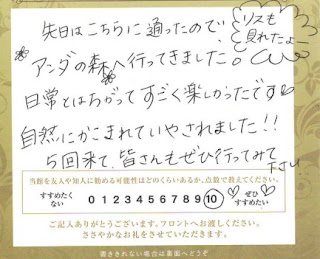 先日はこちらに通ったので、
リスも
見れたよー
アンダの森へ行ってきました。
日常とはちがってすごく楽しかったです
自然にかこまれていやされました!!
5回来て、皆さんもぜひ行ってみて
下さい
当館を友人や知人に勧める可能性はどのくらいあるか、点数で教えてください。
すすめたく
ない
0 1 2 3 4 5 6 7 8 9 10
ぜひ
すすめたい
ご記入ありがとうございます。フロントへお渡しください。
ささやかなお礼をさせていただきます。
書ききれない場合は裏面へどうぞ